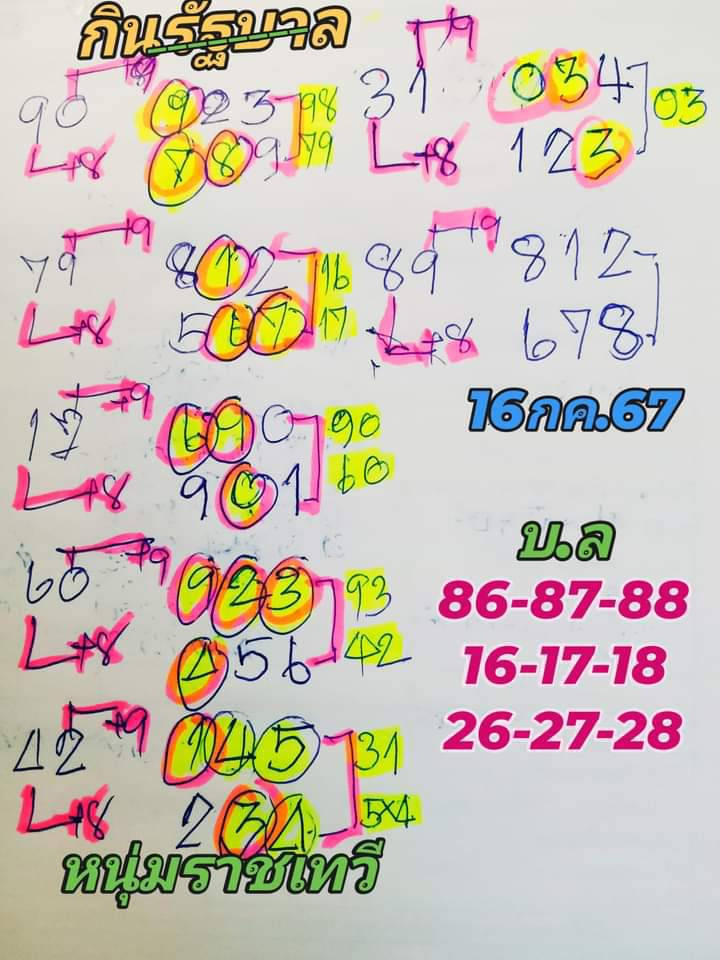 กินรัฐบาล
90 +9 923 98
+8 789 79
79 +9 812 16
+8 567 17
17 +9 690 90
+8 901 60
60 +9 923 93
+8 456 42
42 +9 145 31
+8 234 5×4
31 +9 034 03
+8 123
89 +9 812
+8 678
16กค.67
บ.ล
86-87-88
16-17-18
26-27-28
หนุ่มราชเทวี